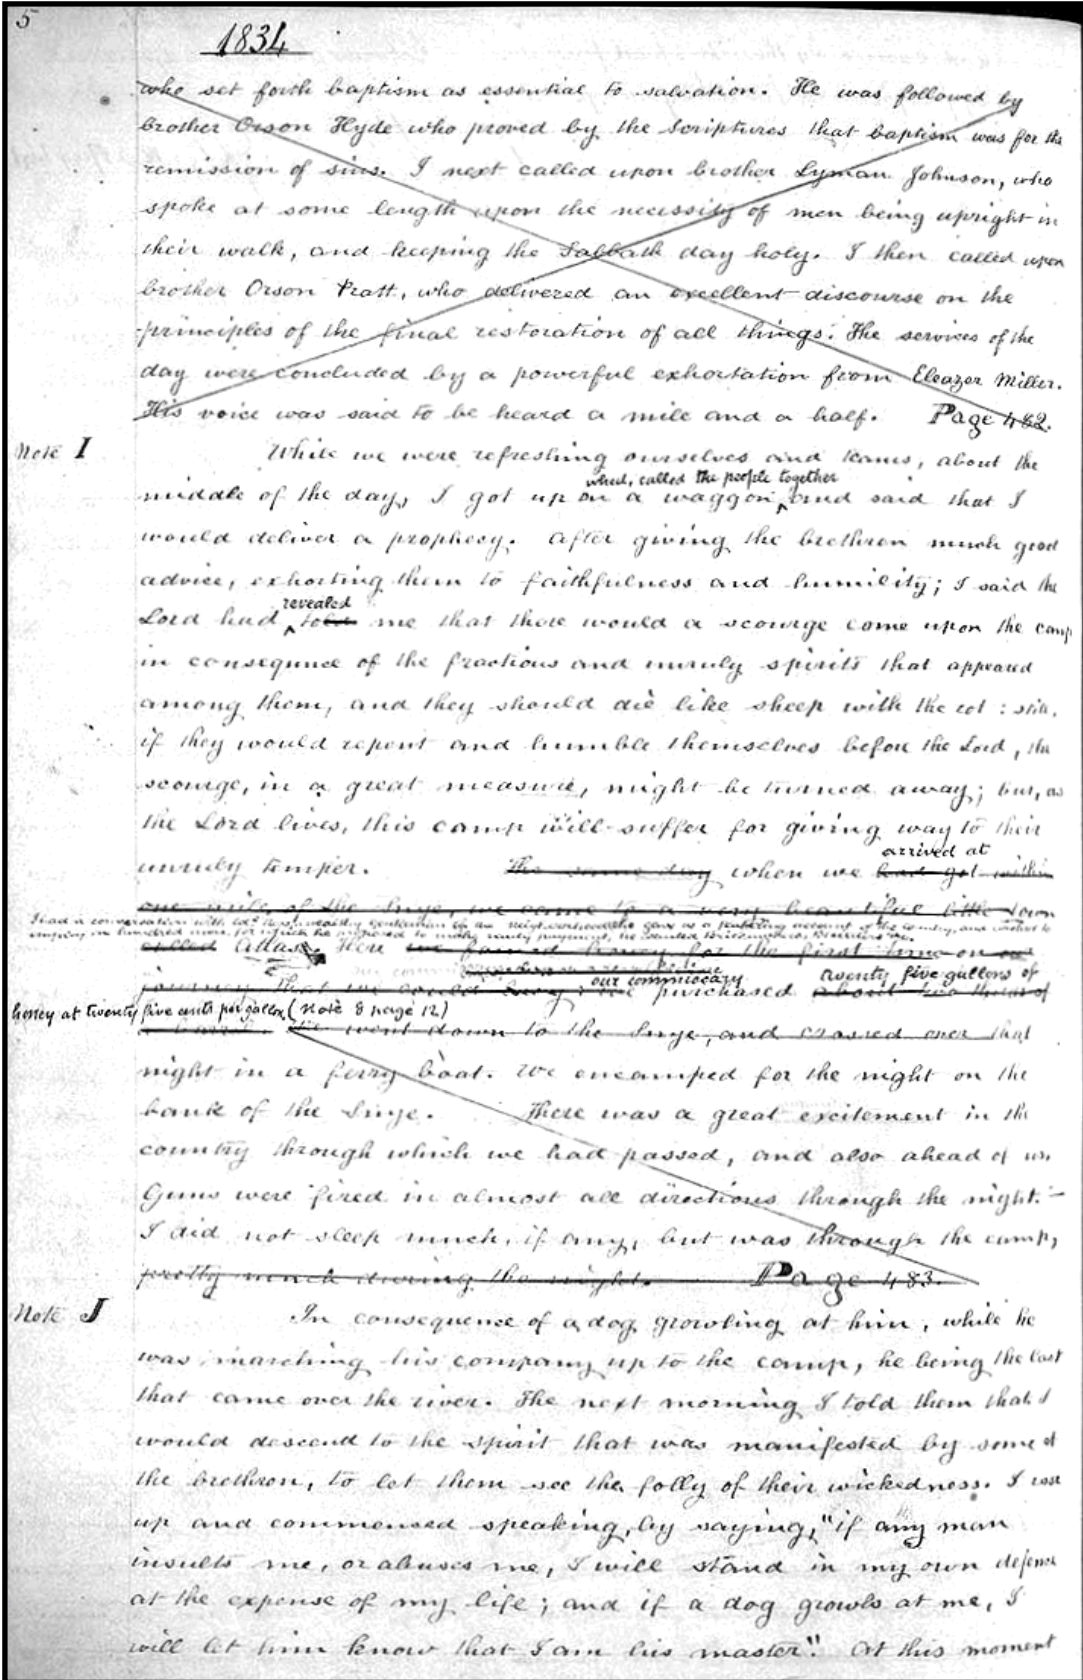 5
1834
who set forth baptism as essential to salvation. He was followed by
brother Orson Hyde who proved by the Scriptures that baptism was for the
remission of sins. I next called upon brother Lyman Johnson, who
spoke at some length upon the necessity of men being upright in
their walk, and keeping the Sabbath day holy. I then called upon
brother Orson Pratt, who delivered an excellent discourse on the
principles of the final restoration of all things. The services of the
day were concluded by a powerful exhortation from Eleazer Miller.
His voice was said to be heard a mile and a half. Page 482.
Note I
While we were refreshing ourselves and teams, about the
wheel, called the people together
middle of the day, I got up on a waggon and said that I
would deliver a prophecy. After giving the brethren much good
advice, exhorting them to faithfulness and humility; I said the
revealed
Lord had told me that there would a scourge come upon the camp
in consequnce of the fractious and unruly spirits that appeared
among them, and they should die like sheep with the rot: still,
if they would repent and humble themselves before the Lord, the
scourge, in a great measure, might be turned away; but, as
the Lord lives, this camp will suffer for giving way to their
arrived at
unruly temper. The same day when we had got within
one mile, of the Snye, we came to a very beautiful little town
I had a conversation with a wealthy gentleman of the neighborhood who gave us a flattering account of the country, and wished to
employ one hundred men, for which he proposed to make ready payment, he wanted brick
called Atlas. Here we found honey for the first time on our
our commissary twenty five gallons of
journey that we could buy; we purchased about two thirds of
honey at twenty five cents per gallon (note 8 page 12)
a barrel. We went down to the Snye, and crossed over that
night in a ferry boat. We encamped for the night on the
bank of the Snye. There was a great excitement in the
country through which we had passed, and also ahead of us.
Guns were fired in almost all directions through the night.—
I did not sleep much, if any, but was through the camp,
pretty much during the night. Page 483.
Note J
In consequence of a dog growling at him, while he
was marching his company up to the camp, he being the last
that came over the river. The next morning I told them that I
would descend to the spirit that was manifested by some of
the brethren, to let them see the folly of their wickedness. I rose
up and commenced speaking, by saying, "if any man
insults me, or abuses me, I will stand in my own defence
at the expense of my life; and if a dog growls at me, I
will let him know that I am his master." At this moment